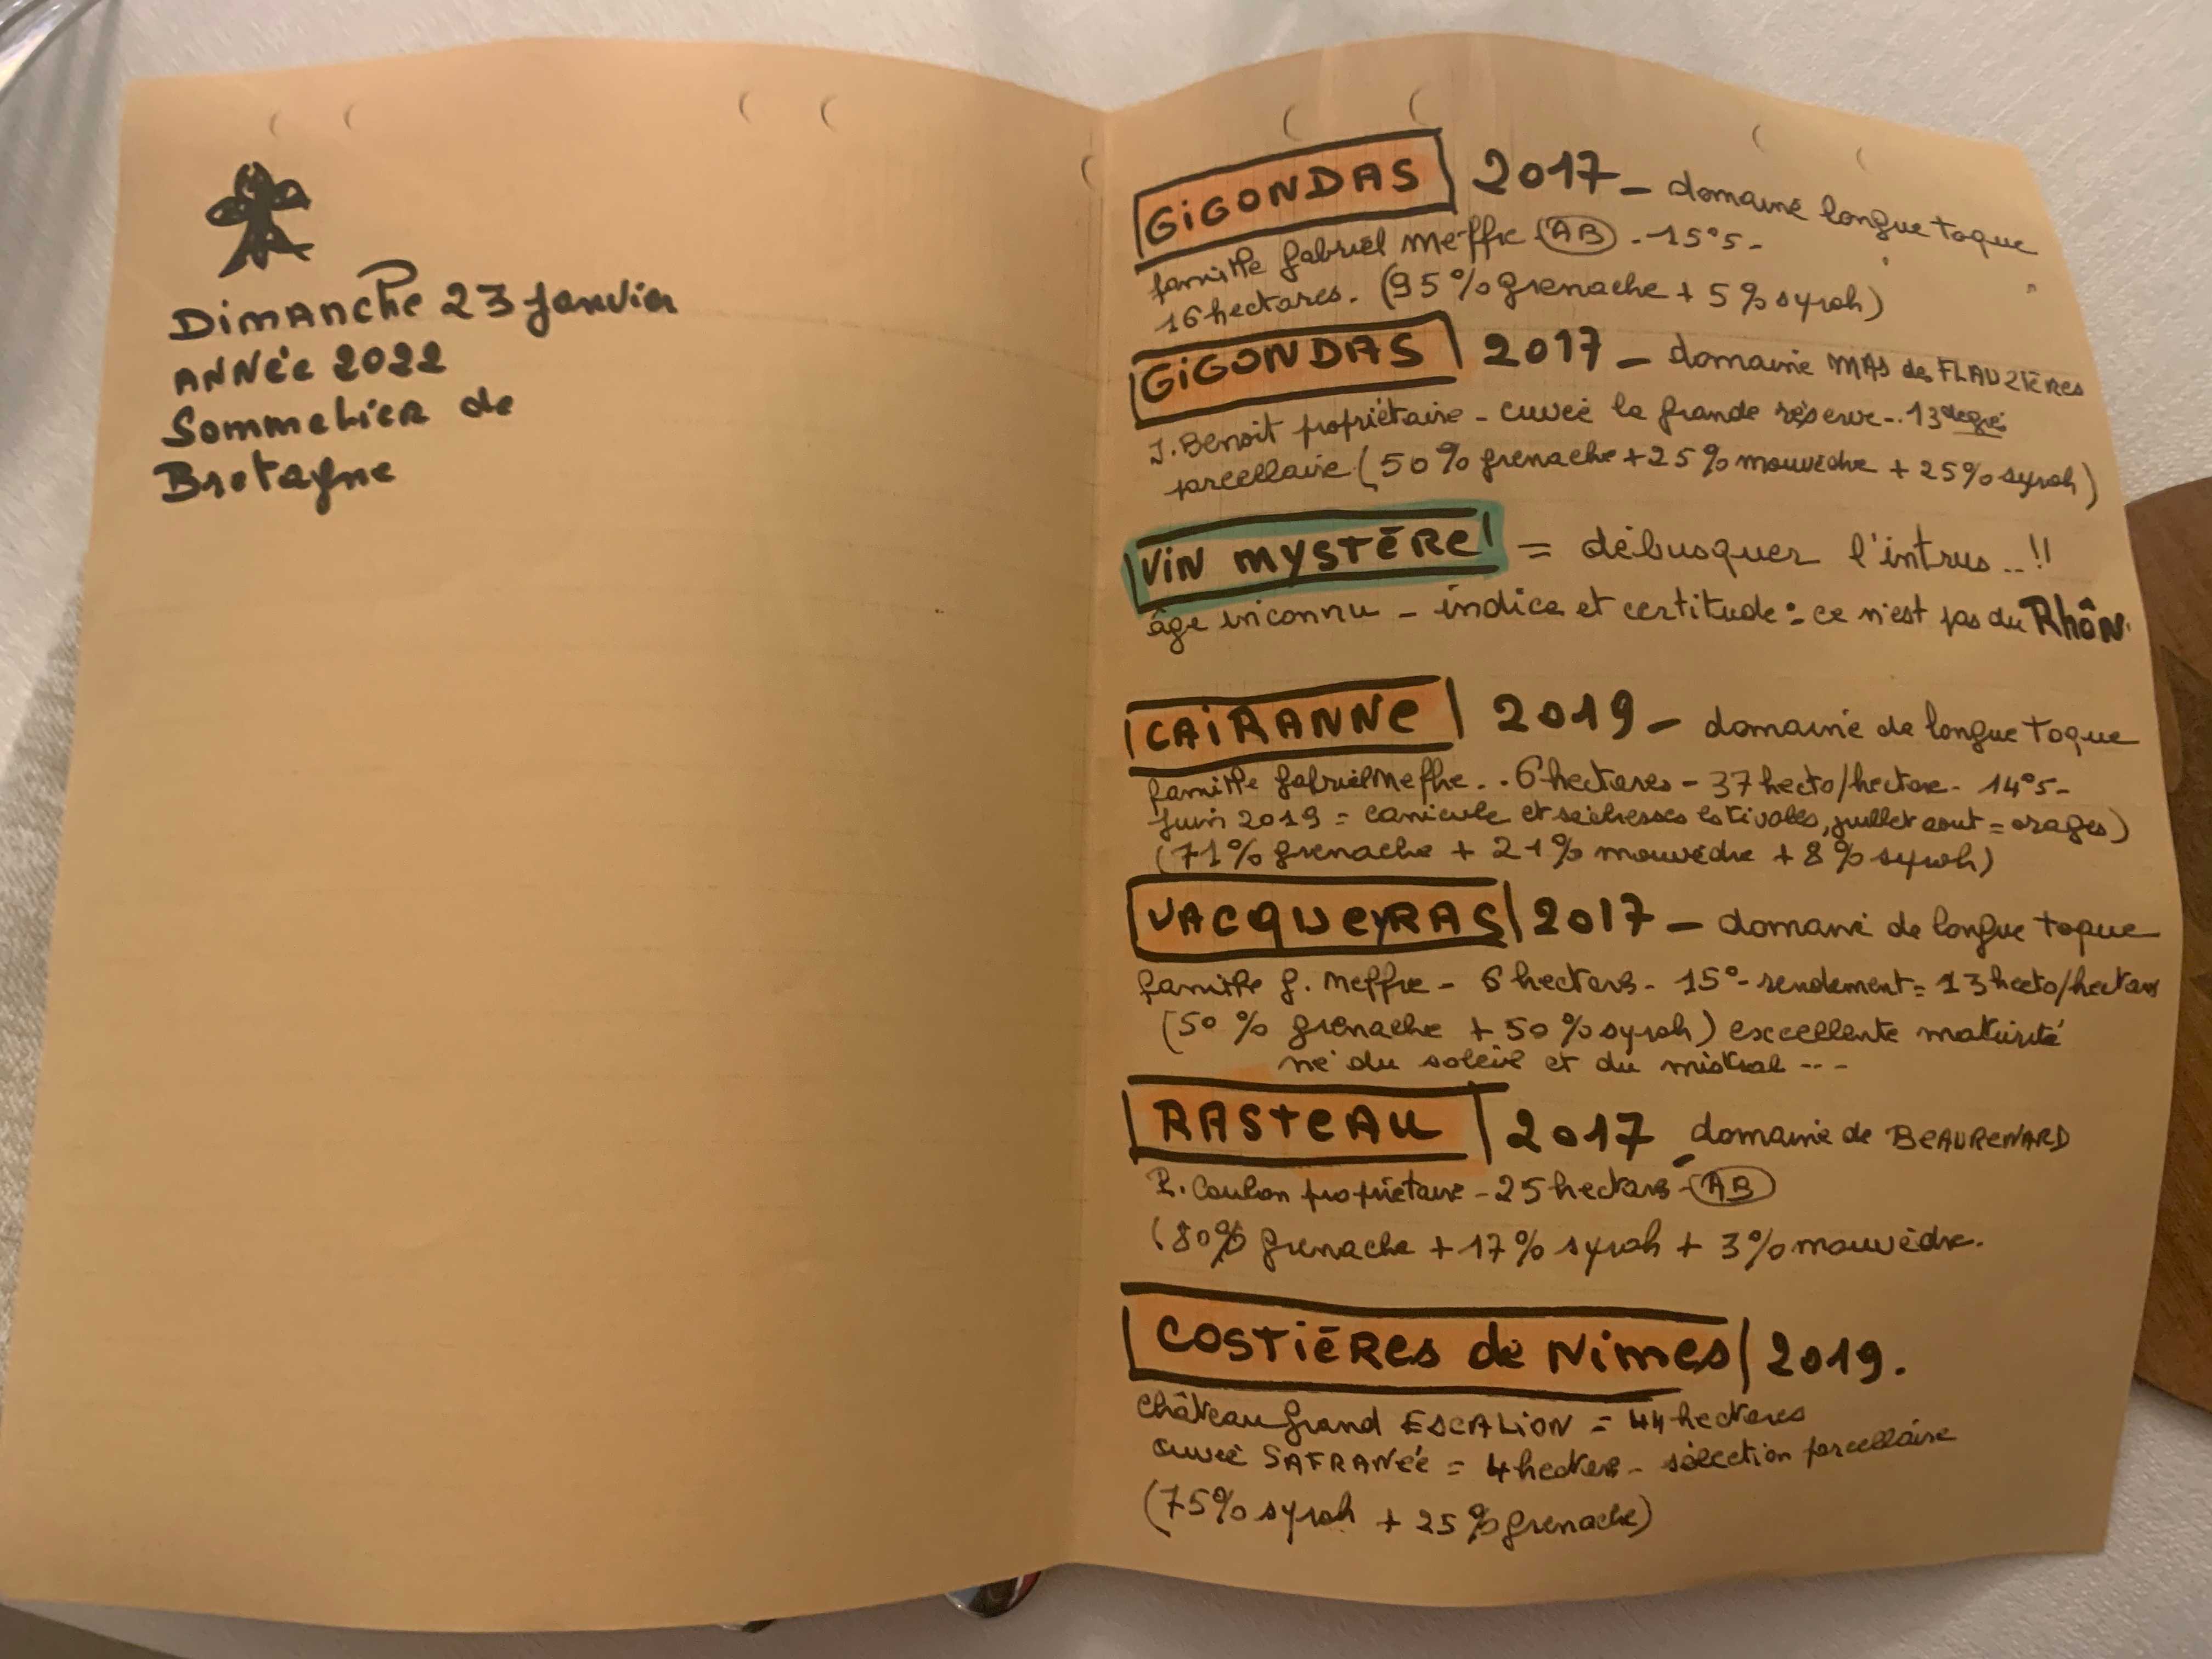 Dimanche 23 Janvier
ANNée 2022
Sommelier de
Bretagne
GiGONDAS 2017 - domaine longue toque
famille gabriel Meffre (AB) - 15°5 -
16 hectares. (95% grenache + 5% syrah)
GiGONDAS 2017 - domaine MAS des FLAUZIÈRES
J. Benoit propriétaire - cuvée la grande réserve - 13 degré
parcellaire (50% grenache + 25% mourvèdre + 25% syrah)
ViN mySTÈRe = débusquer l'intrus ..!!
âge inconnu - indice et certitude : ce n'est pas du Rhôn
CAiRANNe 2019 - domaine de longue toque
famille gabriel Meffre. . 6 hectares - 37 hecto/hectare - 14°5 -
Juin 2019 = canicule et sécheresses estivales, juillet aout = orages)
(71% grenache + 21% mourvèdre + 8% syrah)
VACQUeyRAS 2017 - domaine de longue toque
famille g. Meffre - 6 hectares - 15° - rendement = 13 hecto/hectare
(50 % grenache + 50 % syrah) excellente maturité
né du soleil et du mistral ---
RASTeAU 2017 - domaine de BeAURENARD
P. Coulon propriétaire - 25 hectares - (AB)
(80% grenache + 17% syrah + 3% mourvèdre.
COSTiÈRes de Nimes 2019.
Château grand ESCALiON = 44 hectares
cuvée SAFRANéE = 4 hectares - sélection parcellaire
(75% syrah + 25% grenache)